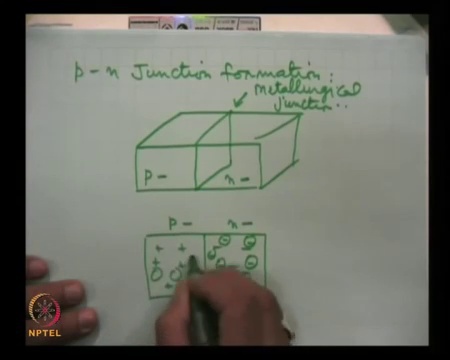 p-n Junction formation:
metallurgical
junction..
p- n-
p- n-
NPTEL